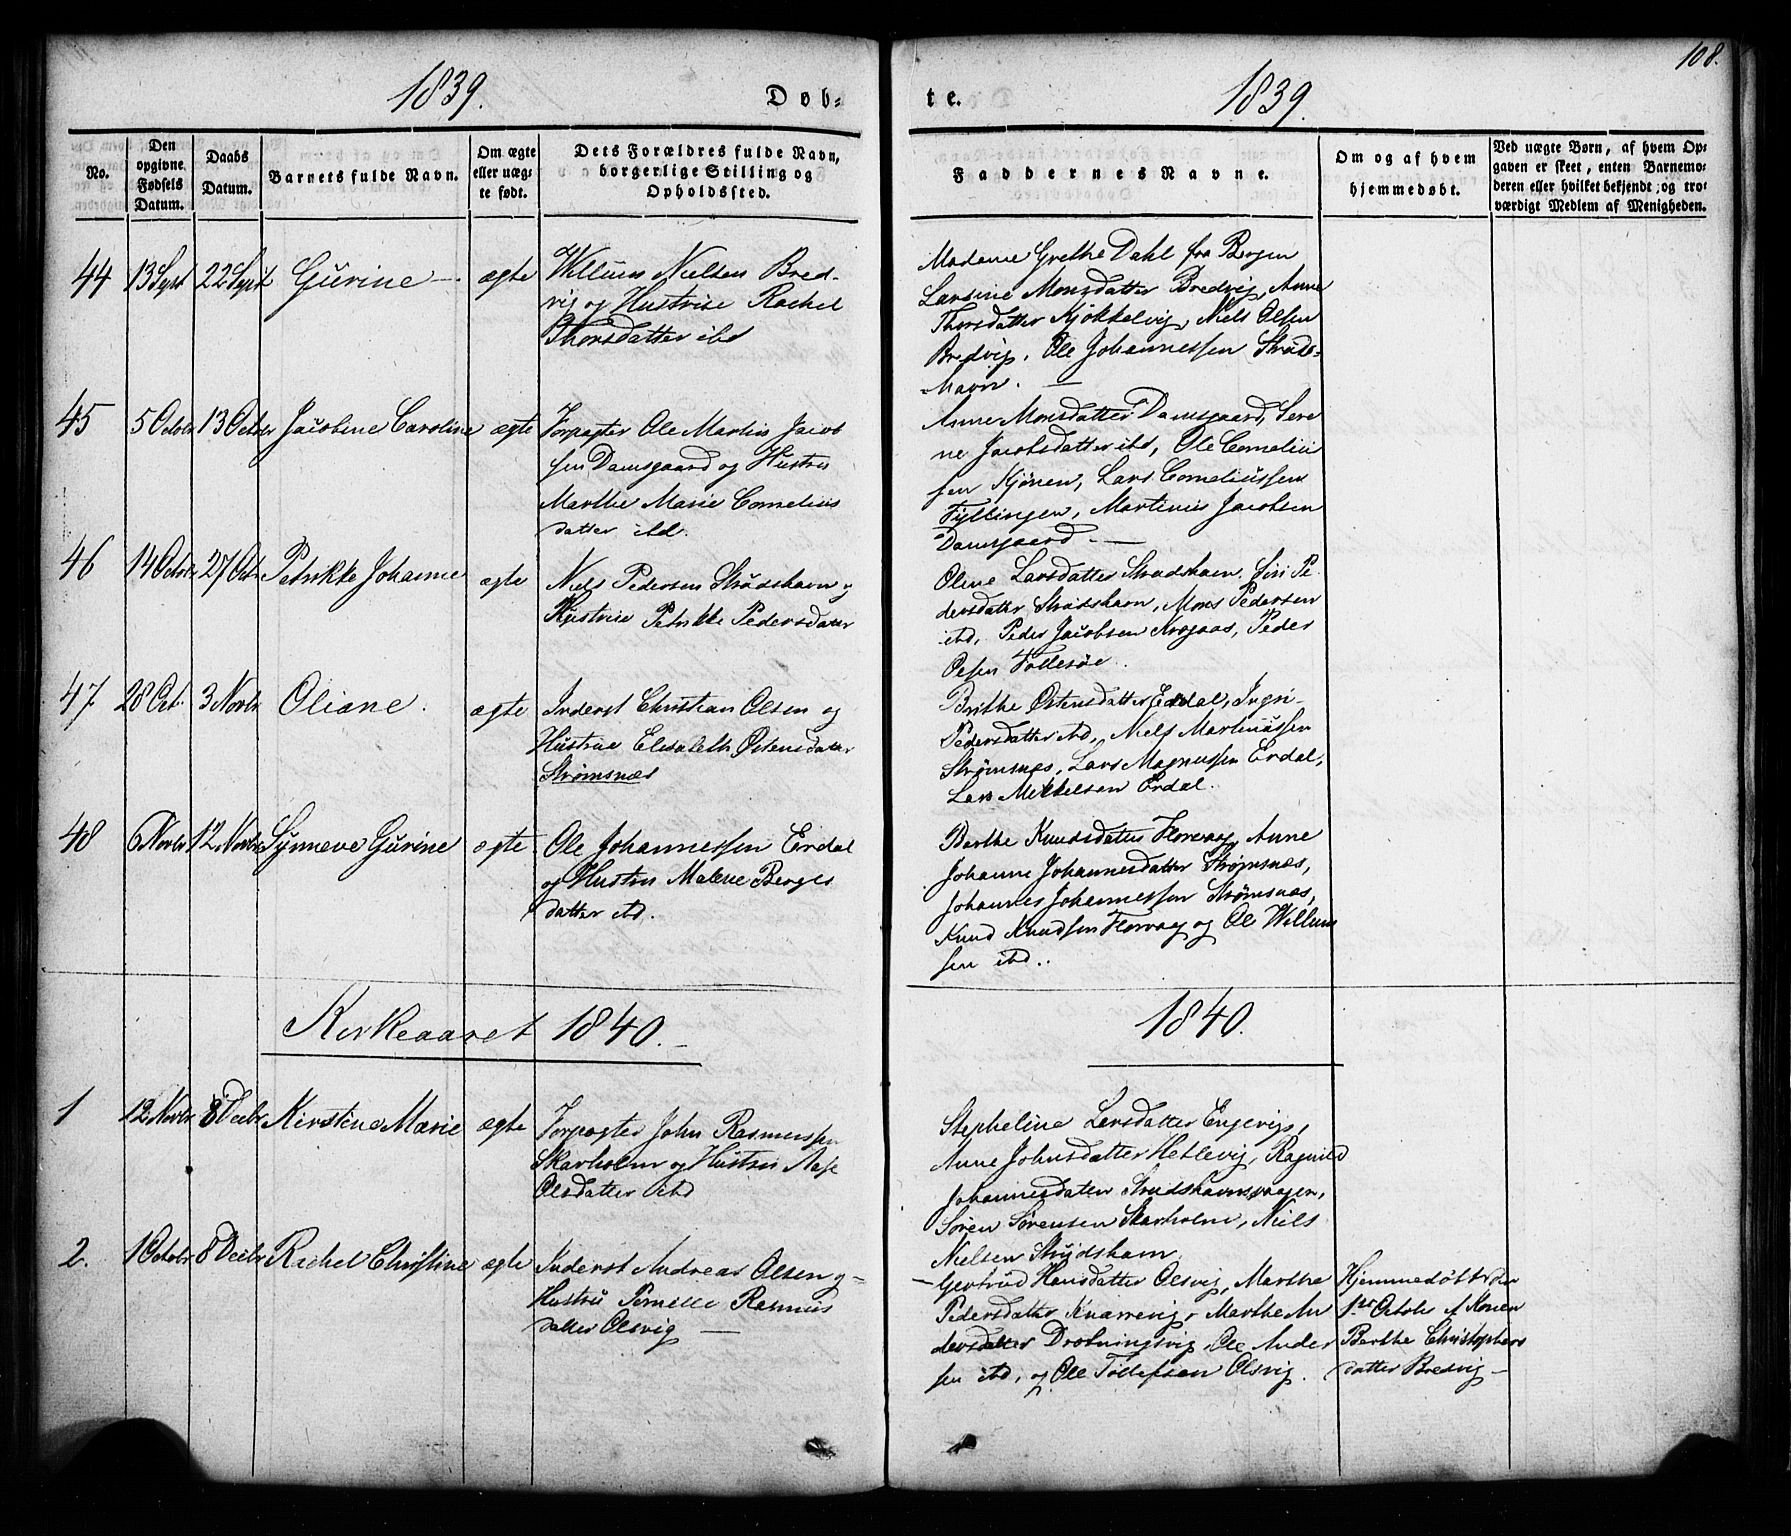 108.
1839. Døb-
te. 1839.
No.
Den opgivne Fødsels Datum.
Daabs Datum.
Barnets fulde Navn.
Om ægte eller uægte født.
Dets Forældres fulde Navn,
borgerlige Stilling og
Opholdssted.
Faddernes Navne.
Om og af hvem
hjemmedøbt.
Ved uægte Børn, af hvem Op-
gaven er skeet, enten Barnemo-
deren eller hvilket bekjendt og tro-
værdigt Medlem af Menigheden.
44 13 Sept 22 Sept Gurine ægte
Willum Nielsen Bred-
vig og Hustrue Rachel
Thorsdatter ibd
Madame Grethe Dahl fra Bergen
Larsine Monsdatter Bredvig, Anne
Thorsdatter Kjøkkelvig, Niels Olsen
Bredvig, Ole Johannessen Struds-
havn.
45 5 Octobr 13 Octobr Jacobine Caroline ægte
Forpagter Ole Martin Jacob
sen Damsgaard og Hustru
Marthe Marie Cornelius
datter ibd.
Anne Monsdatter Damsgaard, Sere
ne Jacobsdatter ibd, Ole Corneliu
sen Kjönen, Lars Corneliussen
Fyllingen, Martinus Jacobsen
Damsgaard.
46 14 Octobr 27 Octr Petrikke Johanne ægte
Niels Pedersen Strudshavn og
Hustrue Petrikke Pedersdatter
Olene Larsdatter Strudshavn, Siri Pe
dersdatter Strudshavn, Mons Pedersen
ibd, Peder Jacobsen Krogaas, Peder
Olsen Follesöe.
47 28 Oct. 3 Novbr Oliane. ægte
Inderst Christian Olsen og
Hustrue Elisabeth Østensdatter
Strømsnæs
Brithe Østensdatter Erdal, Ingri
Pedersdatter ibd, Niels Martinussen
Strømsnæs, Lars Magnussen Erdal,
Lars Mikkelsen Erdal.
48 6 Novbr 12 Novbr Synneve Gurine ægte
Ole Johannessen Erdal
og Hustru Malene Berges
datter ibd.
Berthe Knudsdatter Florvaag, Anne
Johanne Johannesdatter Strømsnæs,
Johannes Johannessen Strømsnæs,
Knud Knudsen Florvaag og Ole Willum
sen ibd.
Kirkeaaret 1840.
1840.
1 12 Novbr 8 Decbr Kirstine Marie ægte
Forpagter John Rasmussen
Skarholm og Hustru Aase
Olsdatter ibd
Stepheline Larsdatter Engevig,
Anne Johnsdatter Hetlevig, Ragnild
Johannesdater Strudshavnsvaagen,
Søren Sørensen Skarholm, Niels
Nielsen Strudshavn
2. 1 Octobr 8 Decbr Rachel Christine ægte
Inderst Andreas Olsen og
Hustru Pernille Rasmus
datter Olsvig
Gertrud Hansdatter Olsvig, Marthe
Pedersdatter Knarrevig, Marthe An
dersdatter Drotningsvig, Ole Ander
sen ibd, og Ole Tollefsen Olsvig.
Hjemmedøbt den
1ste Octobr af Konen
Berthe Christophers
datter Bredvig